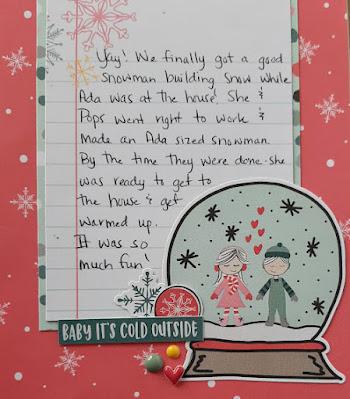 Yay! We finally got a good
snowman building snow while
Ada was at the house. She &
Pops went right to work &
made an Ada sized snowman.
By the time they were done - she
was ready to get to
the house & get
warmed up.
It was so
much fun!
BABY IT'S COLD OUTSIDE